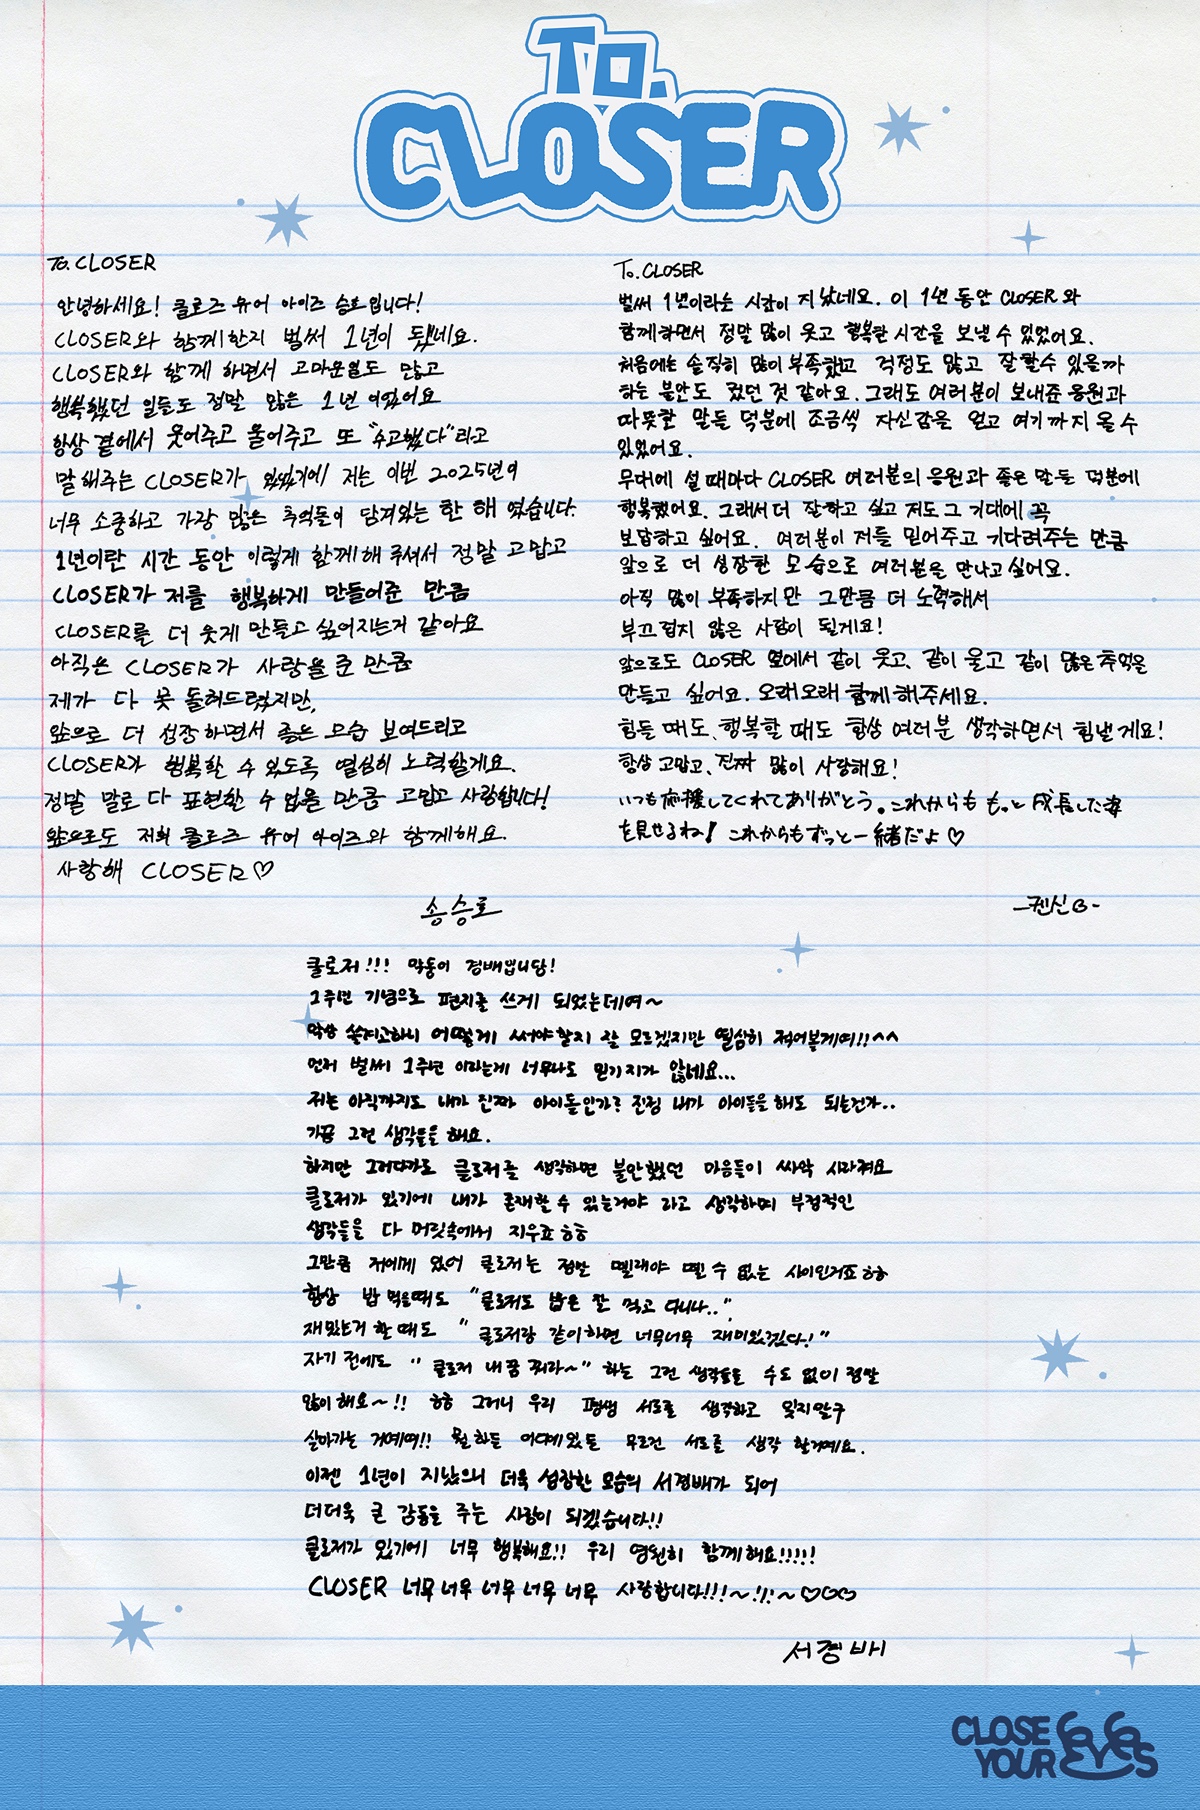 To.
CLOSER
To. CLOSER
안녕하세요! 클로즈 유어 아이즈 승호입니다!
CLOSER와 함께한지 벌써 1년이 됐네요.
CLOSER와 함께 하면서 고마운일도 많고
행복했던 일들도 정말 많은 1년 이었어요
항상 곁에서 웃어주고 울어주고 또 "수고했다"라고
말해주는 CLOSER가 있었기에 저는 이번 2025년이
너무 소중하고 가장 많은 추억들이 담겨있는 한 해 였습니다.
1년이란 시간 동안 이렇게 함께해 주셔서 정말 고맙고
CLOSER가 저를 행복하게 만들어준 만큼
CLOSER를 더 웃게 만들고 싶어지는거 같아요
아직은 CLOSER가 사랑을 준 만큼
제가 다 못 돌려드렸지만,
앞으로 더 성장하면서 좋은 모습 보여드리고
CLOSER가 행복할 수 있도록 열심히 노력할게요.
정말 말로 다 표현할 수 없을 만큼 고맙고 사랑합니다!
앞으로도 저희 클로즈 유어 아이즈와 함께해요.
사랑해 CLOSER♡
송승호
To. CLOSER
벌써 1년이라는 시간이 지났네요. 이 1년 동안 CLOSER와
함께하면서 정말 많이 웃고 행복한 시간을 보낼 수 있었어요.
처음에는 솔직히 많이 부족했고 걱정도 많고 잘 할수 있을까
하는 불안도 컸던 것 같아요. 그래도 여러분이 보내준 응원과
따뜻한 말들 덕분에 조금씩 자신감을 얻고 여기까지 올 수
있었어요.
무대에 설 때마다 CLOSER 여러분의 응원과 좋은 말들 덕분에
행복했어요. 그래서 더 잘하고 싶고 저도 그 기대에 꼭
보답하고 싶어요. 여러분이 저를 믿어주고 기다려주는 만큼
앞으로 더 성장한 모습으로 여러분을 만나고 싶어요.
아직 많이 부족하지만 그만큼 더 노력해서
부끄럽지 않은 사람이 될게요!
앞으로도 CLOSER 옆에서 같이 웃고, 같이 울고 같이 많은 추억을
만들고 싶어요. 오래오래 함께 해주세요.
힘들 때도, 행복할 때도 항상 여러분 생각하면서 힘낼게요!
항상 고맙고, 진짜 많이 사랑해요!
いつも応援してくれてありがとう。これからも もっと成長した姿
を見せるね! これからもずっと一緒だよ♡
-켄신-
클로저!!! 막둥이 경배입니당!
1주년 기념으로 편지를 쓰게 되었는데여~
막상 쓸려고하니 어떻게 써야할지 잘 모르겠지만 열심히 적어볼게여!!^^
먼저 벌써 1주년 이라는게 너무나도 믿기지가 않네요...
저는 아직까지도 내가 진짜 아이돌인가? 진짜 내가 아이돌을 해도 되는건가..
가끔 그런 생각들을 해요.
하지만 그러다가도 클로저를 생각하면 불안했던 마음들이 싸악 사라져요
클로저가 있기에 내가 존재할 수 있는거야 라고 생각하며 부정적인
생각들을 다 머릿속에서 지우죠ㅎㅎ
그만큼 저에게 있어 클로저는 정말 뗄래야 뗄 수 없는 사이인거죠ㅎㅎ
항상 밥 먹을때도 "클로저도 밥은 잘 먹고 다니나.."
재밌는거 할 때도 "클로저랑 같이하면 너무너무 재미있겠다!"
자기 전에도 "클로저 내 꿈 꿔라~" 하는 그런 생각들을 수도 없이 정말
많이 해요~!! ㅎㅎ 그러니 우리 평생 서로를 생각하고 잊지말구
살아가는 거예여!! 뭘하든 어디에있든 무조건 서로를 생각 할거예요.
이젠 1년이 지났으니 더욱 성장한 모습의 서경배가 되어
더더욱 큰 감동을 주는 사람이 되겠습니다!!
클로저가 있기에 너무 행복해요!! 우리 영원히 함께해요!!!!!
CLOSER 너무 너무 너무 너무 너무 사랑합니다!!!~!!!~♡♡♡
서경배
CLOSE
YOUR EYES